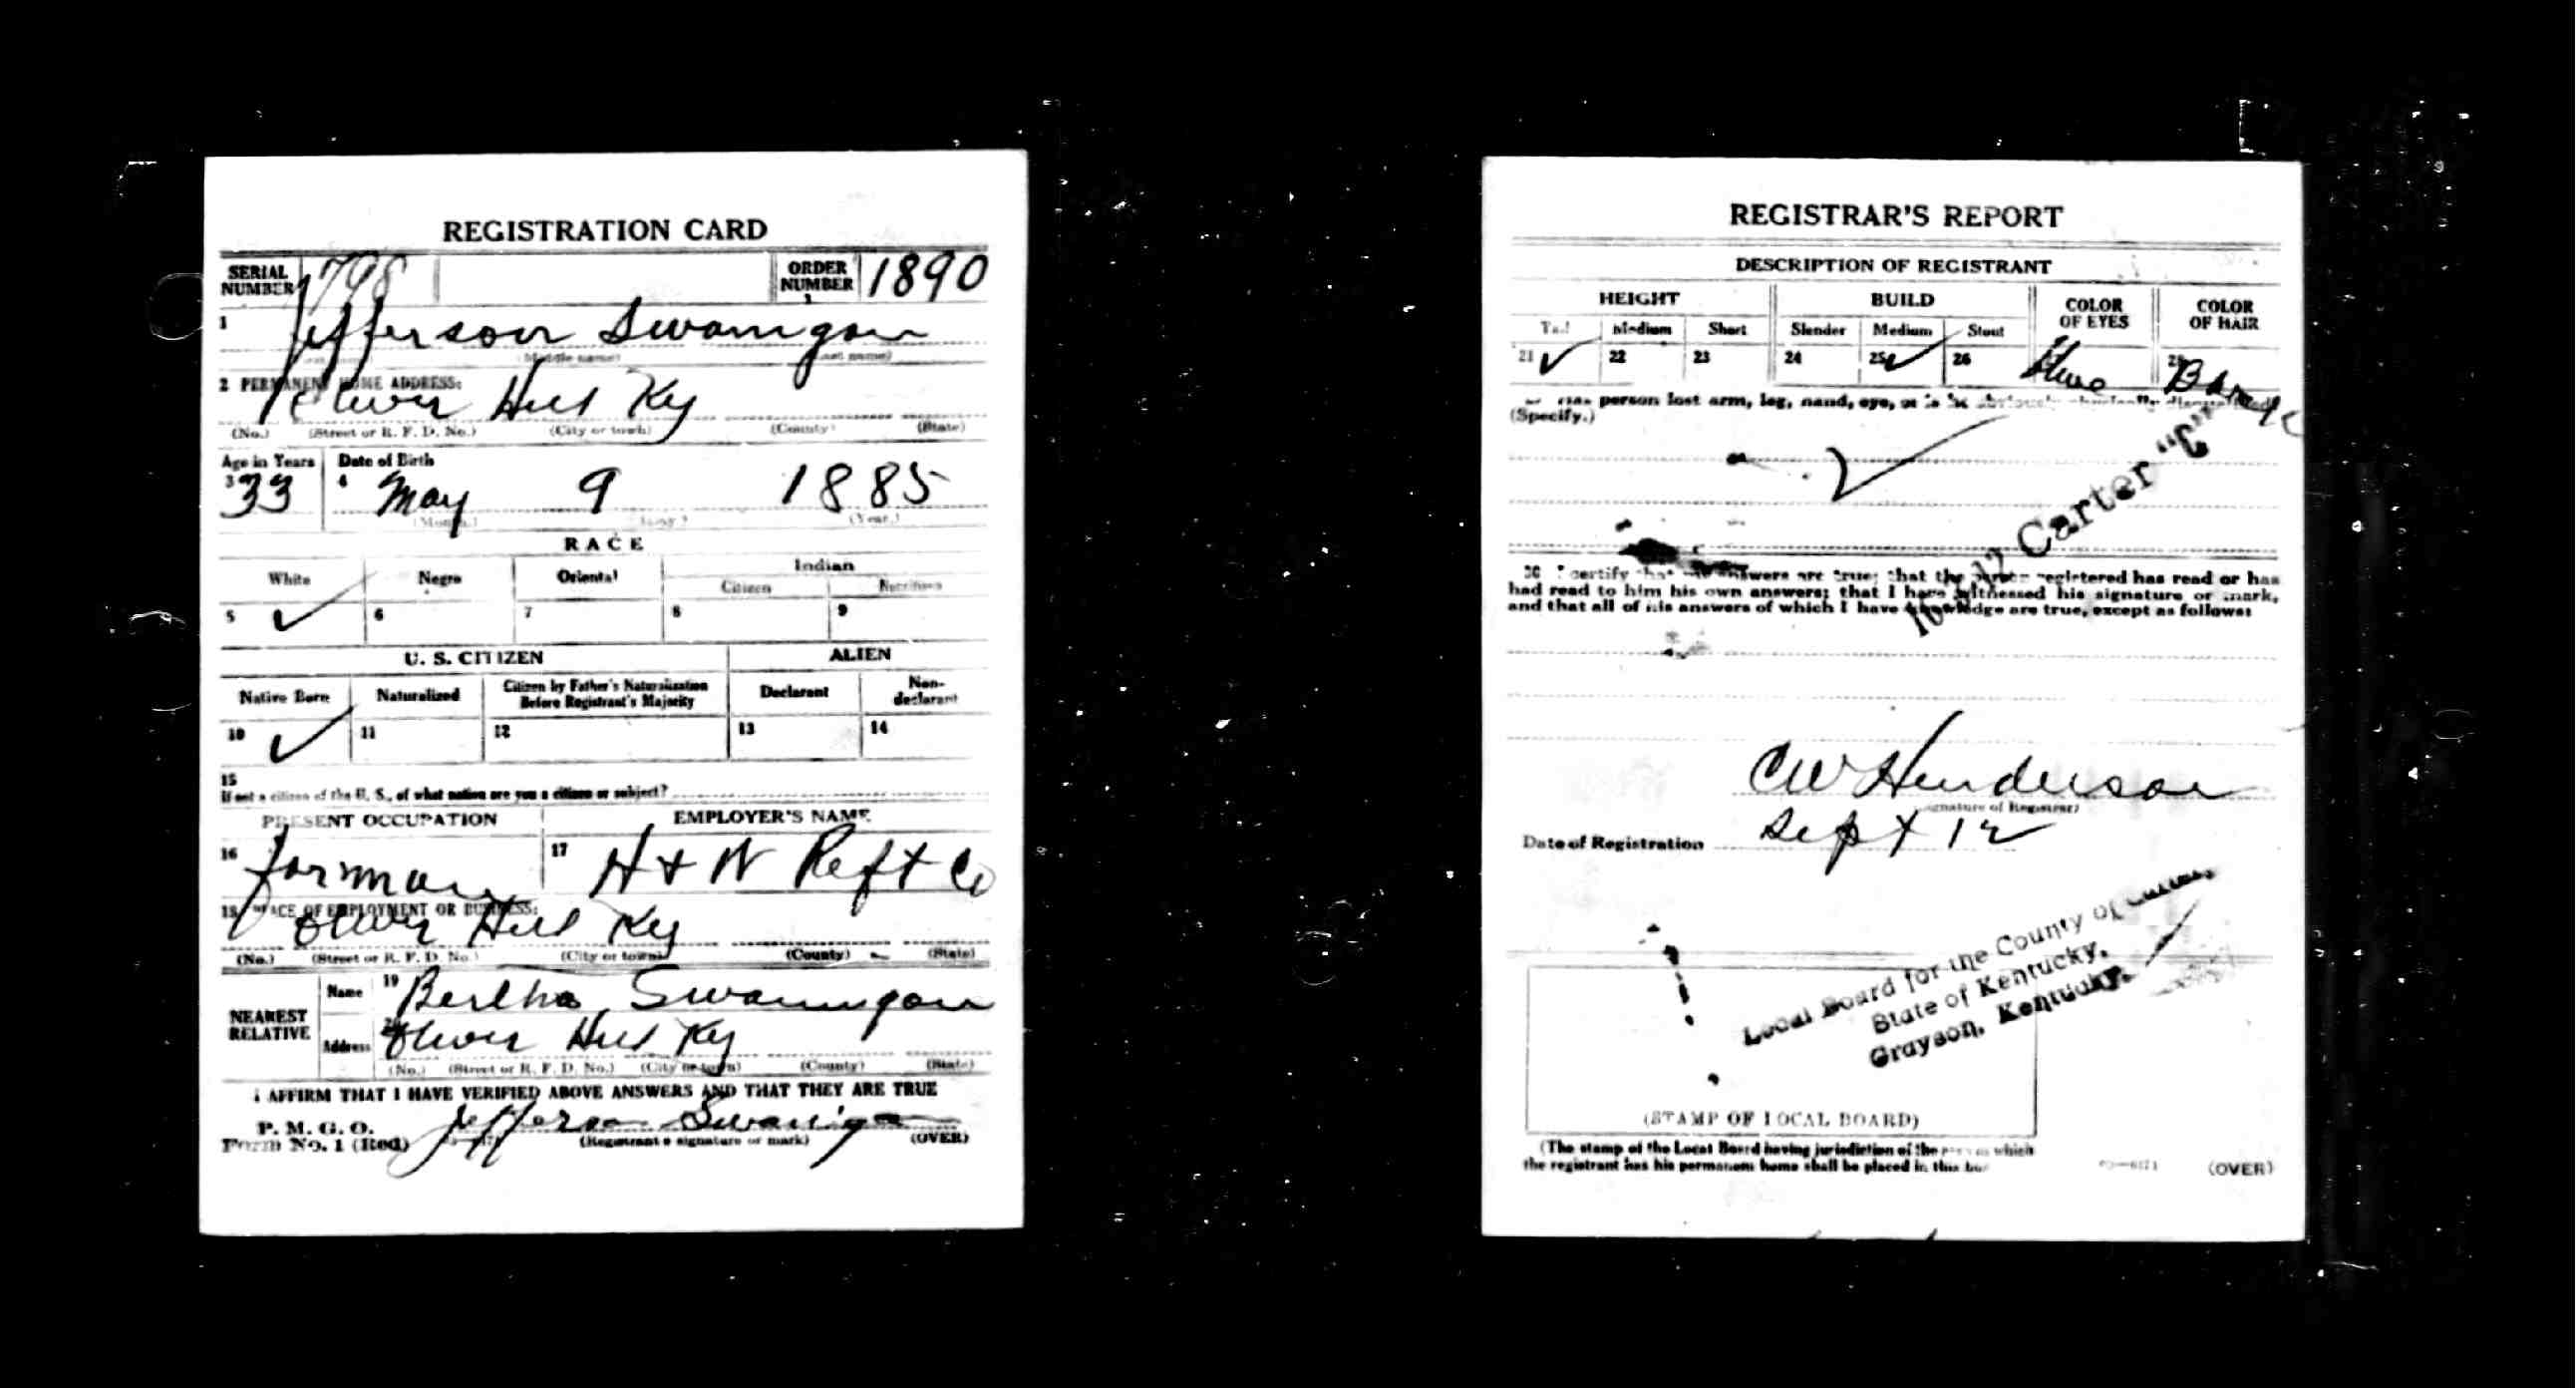 REGISTRATION CARD
SERIAL NUMBER 798 ORDER NUMBER 1890
1 Jefferson Swanigan
(Middle name) (Last name)
2 PERMANENT HOME ADDRESS:
Oliver Hill Ky
(No.) (Street or R. F. D. No.) (City or town) (County) (State)
Age in Years Date of Birth
3 33 4 May 9 1885
(Month.) (Day.) (Year.)
RACE
White Negro Oriental Indian
Citizen Noncitizen
5 ✓ 6 7 8 9
U. S. CITIZEN ALIEN
Native Born Naturalized Citizen by Father's Naturalization Before Registrant's Majority Declarant Non-declarant
10 ✓ 11 12 13 14
15
If not a citizen of the U. S., of what nation are you a citizen or subject?
PRESENT OCCUPATION EMPLOYER'S NAME
16 forman 17 H + W Reft Co
18 PLACE OF EMPLOYMENT OR BUSINESS:
Oliver Hill Ky
(No.) (Street or R. F. D. No.) (City or town) (County) (State)
NEAREST RELATIVE
Name 19 Bertha Swanigan
Address 20 Oliver Hill Ky
(No.) (Street or R. F. D. No.) (City or town) (County) (State)
I AFFIRM THAT I HAVE VERIFIED ABOVE ANSWERS AND THAT THEY ARE TRUE
P. M. G. O.
Form No. 1 (Red) Jefferson Swaniga
(Registrant's signature or mark) (OVER)
REGISTRAR'S REPORT
DESCRIPTION OF REGISTRANT
HEIGHT BUILD COLOR OF EYES COLOR OF HAIR
Tall Medium Short Slender Medium Stout
21 ✓ 22 23 24 25 ✓ 26 Blue 28
person lost arm, leg, hand, eye, or is he obviously physically disqualified?
(Specify.)
✓
Carter "C"
30 I certify that my answers are true; that the person registered has read or has
had read to him his own answers; that I have witnessed his signature or mark,
and that all of his answers of which I have knowledge are true, except as follows:
CW Henderson
(Signature of Registrar)
Date of Registration Sept 12
Local Board for the County of Carter,
State of Kentucky,
Grayson, Kentucky.
(STAMP OF LOCAL BOARD)
(The stamp of the Local Board having jurisdiction of the area in which
the registrant has his permanent home shall be placed in this box.)
(OVER)